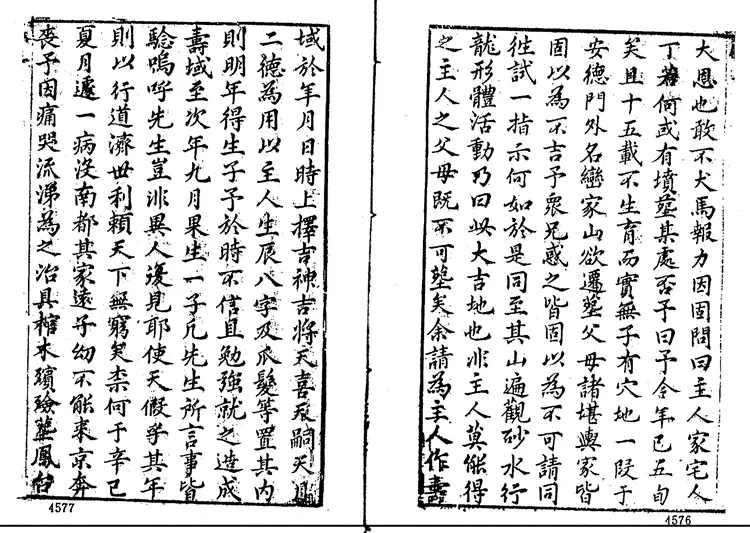 大恩也敢不犬馬報力因固問曰主人家宅人
丁若何或有墳塋某處否予曰予今年已五旬
矣且十五載不生育而實無子有穴地一段于
安德門外名巒家山欲遷塟父母諸堪輿家皆
固以為不吉予衆兄惑之皆固以為不可請同
徃試一指示何如於是同至其山遍觀砂水行
龍形體活動乃曰此大吉地也非主人莫能得
之主人之父母既不可塟矣余請為主人作壽
4576
域於年月日時上擇吉神吉將天喜天嗣天月
二德為用以主人生辰八字及爪髮等置其内
則明年得生子予於時不信且勉強就之造成
壽域至次年九月果生一子凡先生所言事皆
驗嗚呼先生豈非異人復見耶使天假乎其年
則以行道濟世利賴天下無窮矣柰何于辛巳
夏月遘一病沒南都其家遠子幼不能來京奔
喪予因痛哭流涕為之治具棺木殯殮塟鳳台
4577